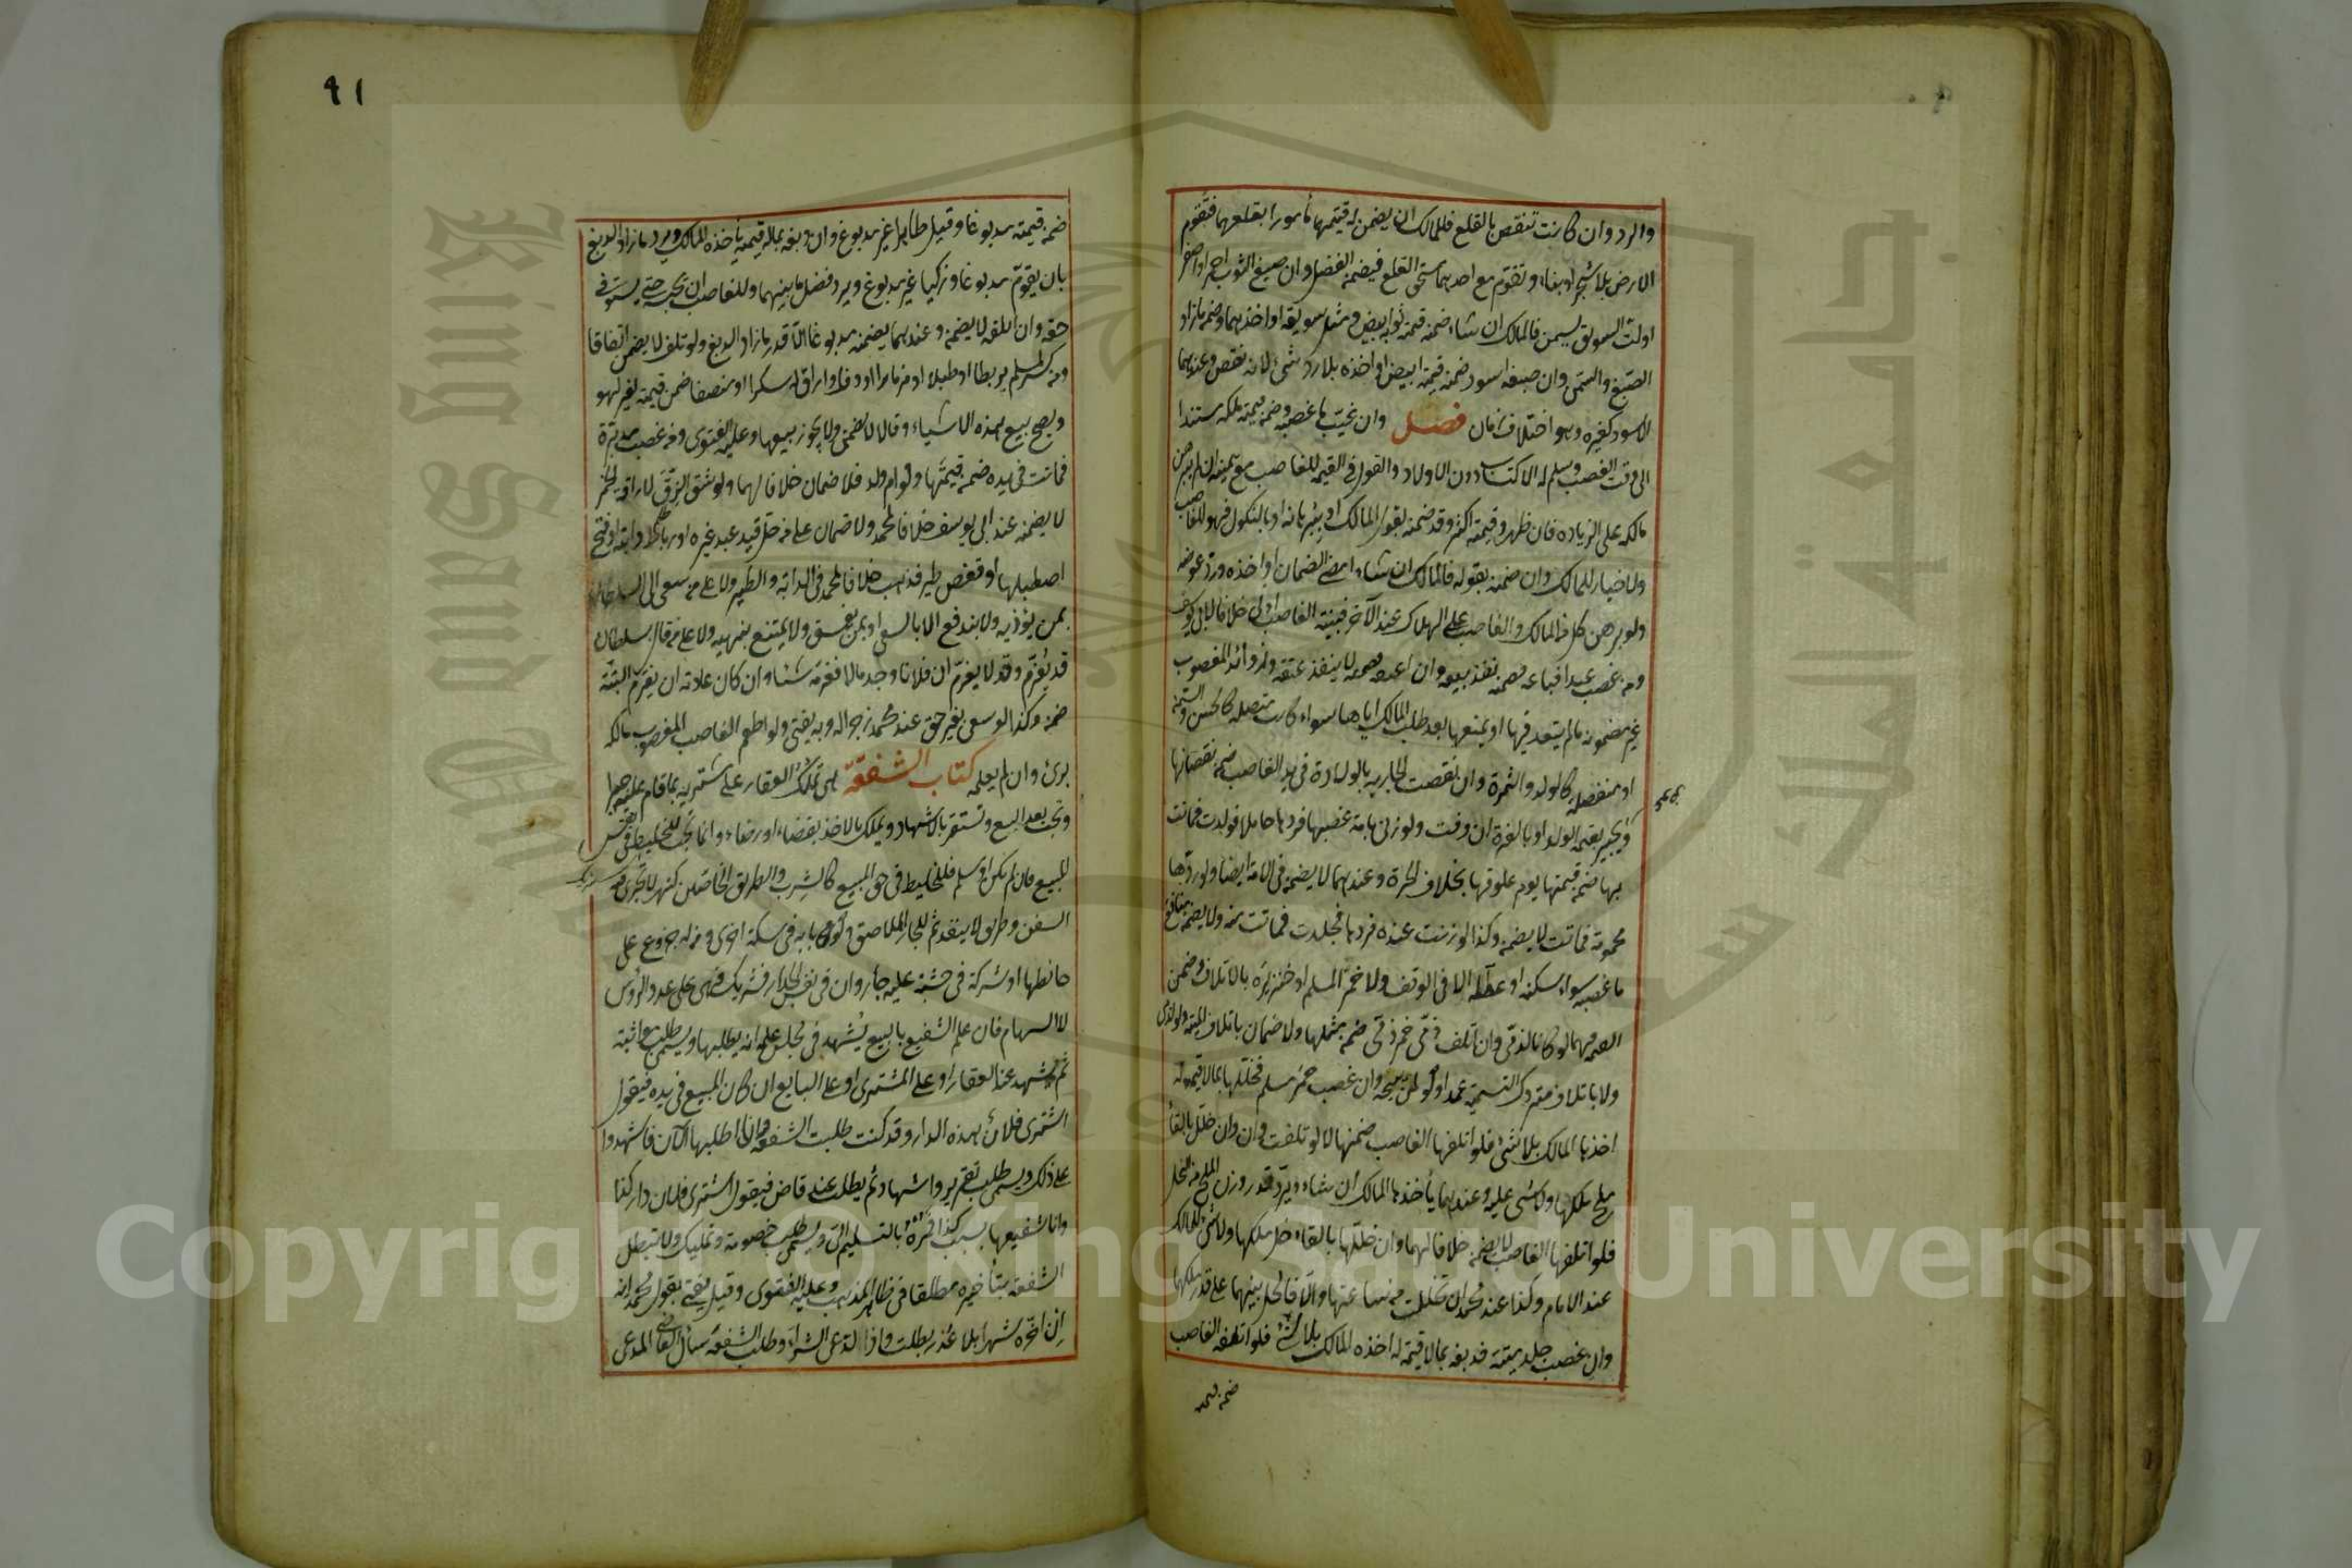 والرد وان كانت تنقص بالقلع فللمالك ان يضمن له قيمتهما مأمورا بقلعهما فتقوم
الارض بلا شجر او بناء وتقوم مع احدهما مستحق القلع فيضمن الفضل وان صبغ الثوب احمر او اصفر
او لت السويق بسمن فالمالك ان شاء ضمنه قيمة ثوبه ابيض ومثل سويقه او اخذهما وضمن ما زاد
الصبغ والسمن وان صبغه اسود ضمنه قيمته ابيض او اخذه بلا رد شئ لانه نقص وعندهما
الاسود كغيره وهو اختلاف زمان فصل وان غيب ما غصبه وضمن قيمته ملكه مستندا
الى وقت الغصب وسلم له الاكتساب دون الاولاد والقول في القيمة للغاصب مع يمينه ان لم يبرهن
مالكه على الزيادة فان ظهر وقيمته اكثر وقد ضمنه بقول المالك او ببرهانه او بالنكول فهو للغاصب
ولا خيار للمالك وان ضمنه بقوله فالمالك ان شاء امضى الضمان او اخذه ورد عوضه
ولو برهن كل من المالك والغاصب على الهلاك عند الآخر فبينة الغاصب اولى خلافا لابي يوسف
ومن غصب عبدا فباعه فضمنه نفذ بيعه وان اعتقه فضمنه لا ينفذ عتقه وزوائد المغصوب
غير مضمونة ما لم يتعد فيها او يمنعها بعد طلب المالك اياها سواء كانت متصلة كالحسن والسمن
او منفصلة كالولد والثمرة وان نقصت الجارية بالولادة في يد الغاصب ضمن نقصانها
ويجبر بقيمة الولد او بالغرة ان وفت ولو زنى بامة غصبها فردها حاملا فولدت فماتت
بها ضمن قيمتها يوم علوقها بخلاف الحرة وعندهما لا يضمن في الامة ايضا ولو ردها
محمومة فماتت لا يضمن وكذا لو زنت عنده فردها فجلدت فماتت منه ولا يضمن منافع
ما غصبه سواء سكنه او عطله الا في الوقف ولا خمر المسلم او خنزيره بالاتلاف وضمن
القيمة فيهما لو كانا لذمي وان اتلف ذمي خمر ذمي ضمن مثلها ولا ضمان باتلاف الميتة ولو لذمي
ولا باتلاف متروك التسمية عمدا ولو لمن يبيحه وان غصب خمر مسلم فخللها بما لا قيمة له
اخذها المالك بلا شئ فلو اتلفها الغاصب ضمنها لا لو تلفت وان خلل بالقاء
ملح ملكها ولا شئ عليه وعندهما يأخذها المالك ان شاء ويرد قدر وزن الملح من الخل
فلو اتلفها الغاصب لا يضمن خلافا لهما وان خللها بالقاء خل ملكها ولا شئ للمالك
عند الامام وكذا عند محمد ان تخللت من ساعتها والا فالخل بينهما على قدر ملكهما
وان غصب جلد ميتة فدبغه بما لا قيمة له اخذه المالك بلا شئ فلو اتلفه الغاصب
ضمن قيمته
٩١
ضمن قيمته مدبوغا وقيل طاهرا غير مدبوغ وان دبغه بماله قيمة يأخذه المالك ويرد ما زاد الدبغ
بان يقوم مدبوغا وذكيا غير مدبوغ ويرد فضل ما بينهما وللغاصب ان يحبسه حتى يستوفي
حقه وان اتلفه لا يضمن وعندهما يضمنه مدبوغا الا قدر ما زاد الدبغ ولو تلف لا يضمن اتفاقا
ومن كسر لمسلم بربطا او طبلا او مزمارا او دفا او اراق له سكرا او منصفا ضمن قيمته لغير لهو
ويصح بيع هذه الاشياء وقالا لا يضمن ولا يجوز بيعها وعليه الفتوى ومن غصب مدبرة
فماتت في يده ضمن قيمتها ولو ام ولد فلا ضمان خلافا لهما ولو شق الزق لاراقة الخمر
لا يضمنه عند ابي يوسف خلافا لمحمد ولا ضمان على من حل قيد عبد غيره او رباط دابته او فتح
اصطبلها او قفص طير فذهب خلافا لمحمد في الدابة والطير ولا على من سعى الى السلطان
بمن يؤذيه ولا يندفع الا بالسعي او بمن يفسق ولا يمتنع بنهيه ولا على من قال لسلطان
قد يغرم وقد لا يغرم ان فلانا وجد مالا فغرمه شيئا وان كان عادته ان يغرم البتة
ضمن وكذا لو سعى بغير حق عند محمد زجرا له وبه يفتى ولو اطعم الغاصب المغصوب مالكه
برئ وان لم يعلمه كتاب الشفعة هي تملك العقار على مشتريه بما قام عليه جبرا
وتجب بعد البيع وتستقر بالاشهاد ويملك بالاخذ بقضاء او رضاء وانما تجب للخليط في نفس
المبيع فان لم يكن او سلم فللخليط في حق المبيع كالشرب والطريق الخاصين كنهر لا تجري فيه
السفن وطريق لا ينفذ ثم للجار الملاصق ولو بابه في سكة اخرى ومن له جذوع على
حائطها او شركة في خشبة عليه جار وان في نفس الجدار فشريك وهي على عدد الرؤس
لا السهام فان علم الشفيع بالبيع يشهد في مجلس علمه انه يطلبها ويسمى طلب مواثبة
ثم يشهد عند العقار او على المشتري او على البايع ان كان المبيع في يده فيقول
اشترى فلان هذه الدار وقد كنت طلبت الشفعة وانا اطلبها الآن فاشهدوا
على ذلك ويسمى طلب تقرير واشهاد ثم يطلب عند قاض فيقول اشترى فلان دار كذا
وانا شفيعها بسبب كذا فمره بالتسليم الي ويسمى طلب خصومة وتمليك ولا تبطل
الشفعة بتأخيره مطلقا في ظاهر المذهب وعليه الفتوى وقيل يفتى بقول محمد انه
ان اخره شهرا بلا عذر بطلت واذا ادعى الشراء وطلب الشفعة سأل القاضي المدعى
Copyright © King Saud University